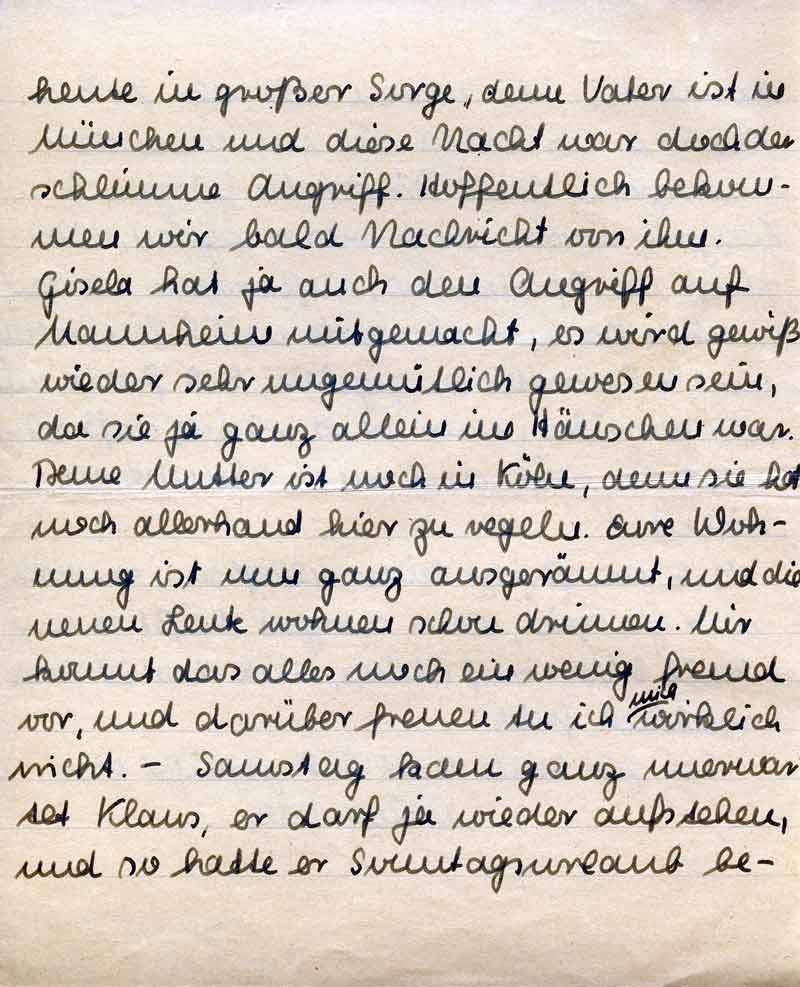 heute in großer Sorge, denn Vater ist in
München und diese Nacht war doch der
schlimme Angriff. Hoffentlich bekom-
men wir bald Nachricht von ihm.
Gisela hat ja auch den Angriff auf
Mannheim mitgemacht, es wird gewiß
wieder sehr ungemütlich gewesen sein,
da sie ja ganz allein im Häuschen war.
Deine Mutter ist noch in Köln, denn sie hat
noch allerhand hier zu regeln. Eure Woh-
nung ist nun ganz ausgeräumt, und die
neuen Leute wohnen schon drinnen. Mir
kommt das alles noch ein wenig fremd
vor, und darüber freuen tu ich mich wirklich
nicht. – Samstag kam ganz unerwar
tet Klaus, er darf ja wieder aufstehen,
und so hatte er Sonntagsurlaub be-